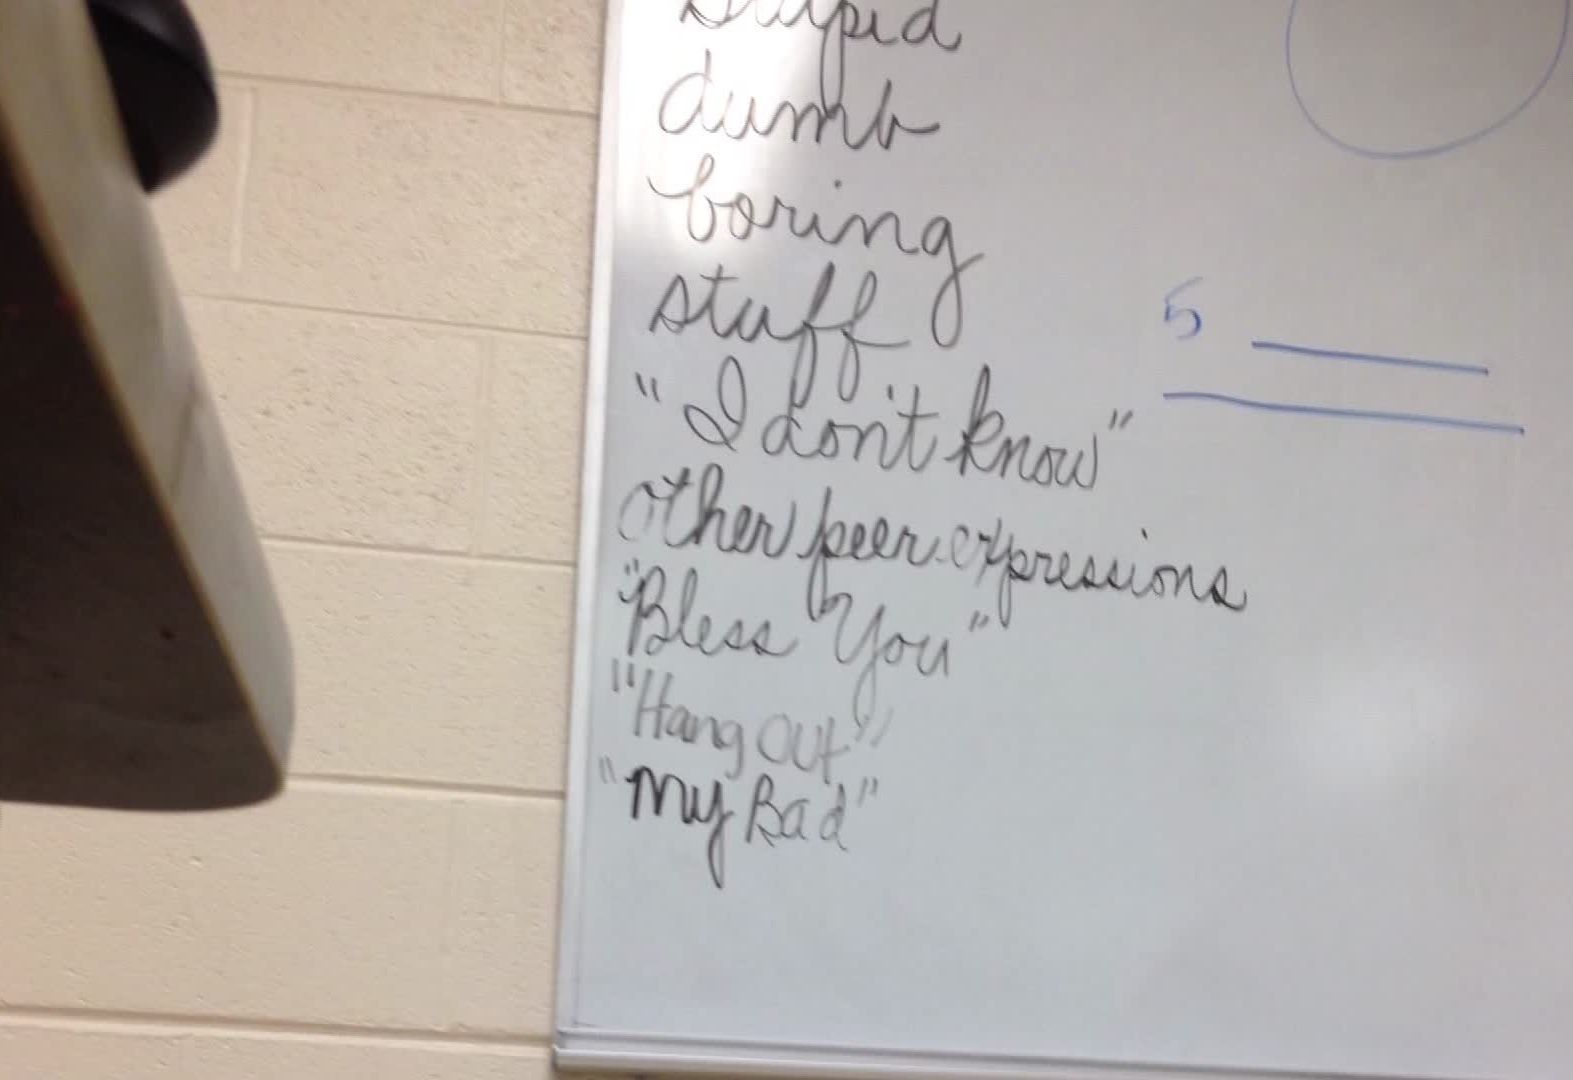 stupid
dumb
boring
stuff
"I don't know"
other peer expressions
"Bless You"
"Hang Out"
"My Bad"
5